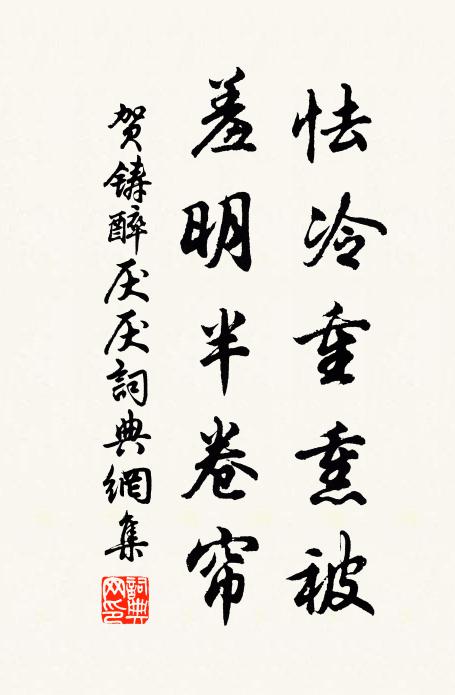 怯冷重熏被
羞明半卷帘
贺铸醉厌厌詞典網集
詞典网印